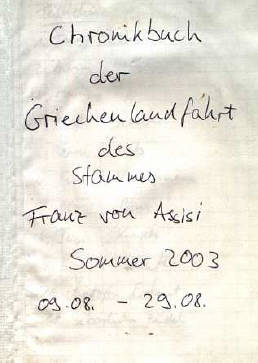 Chronikbuch
der
Griechenlandfahrt
des
Stammes
Franz von Assisi
Sommer 2003
09.08. - 29.08.